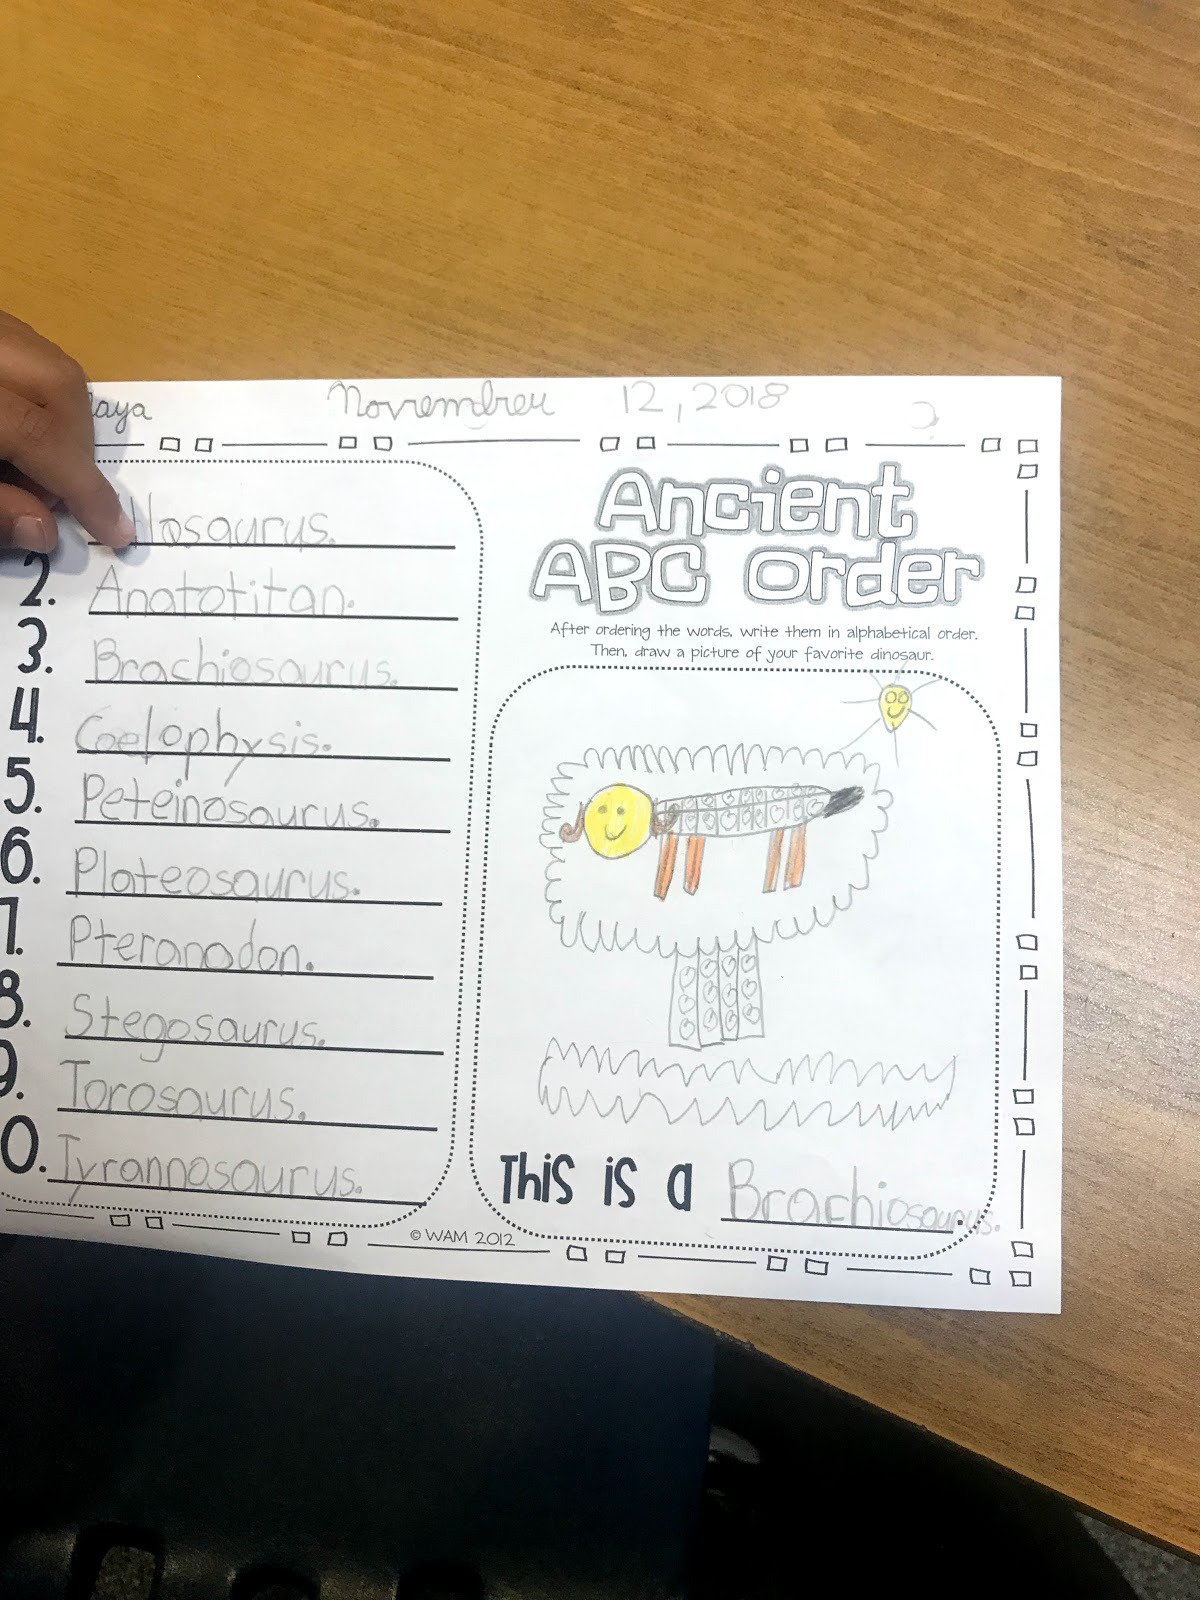 November 12, 2018
Allosaurus.
2. Anatotitan.
3. Brachiosaurus.
4. Coelophysis.
5. Peteinosaurus.
6. Plateosaurus.
7. Pteranodon.
8. Stegosaurus.
9. Torosaurus.
0. Tyrannosaurus.
Ancient
ABC Order
After ordering the words, write them in alphabetical order.
Then, draw a picture of your favorite dinosaur.
This is a Brachiosaurus.
© WAM 2012